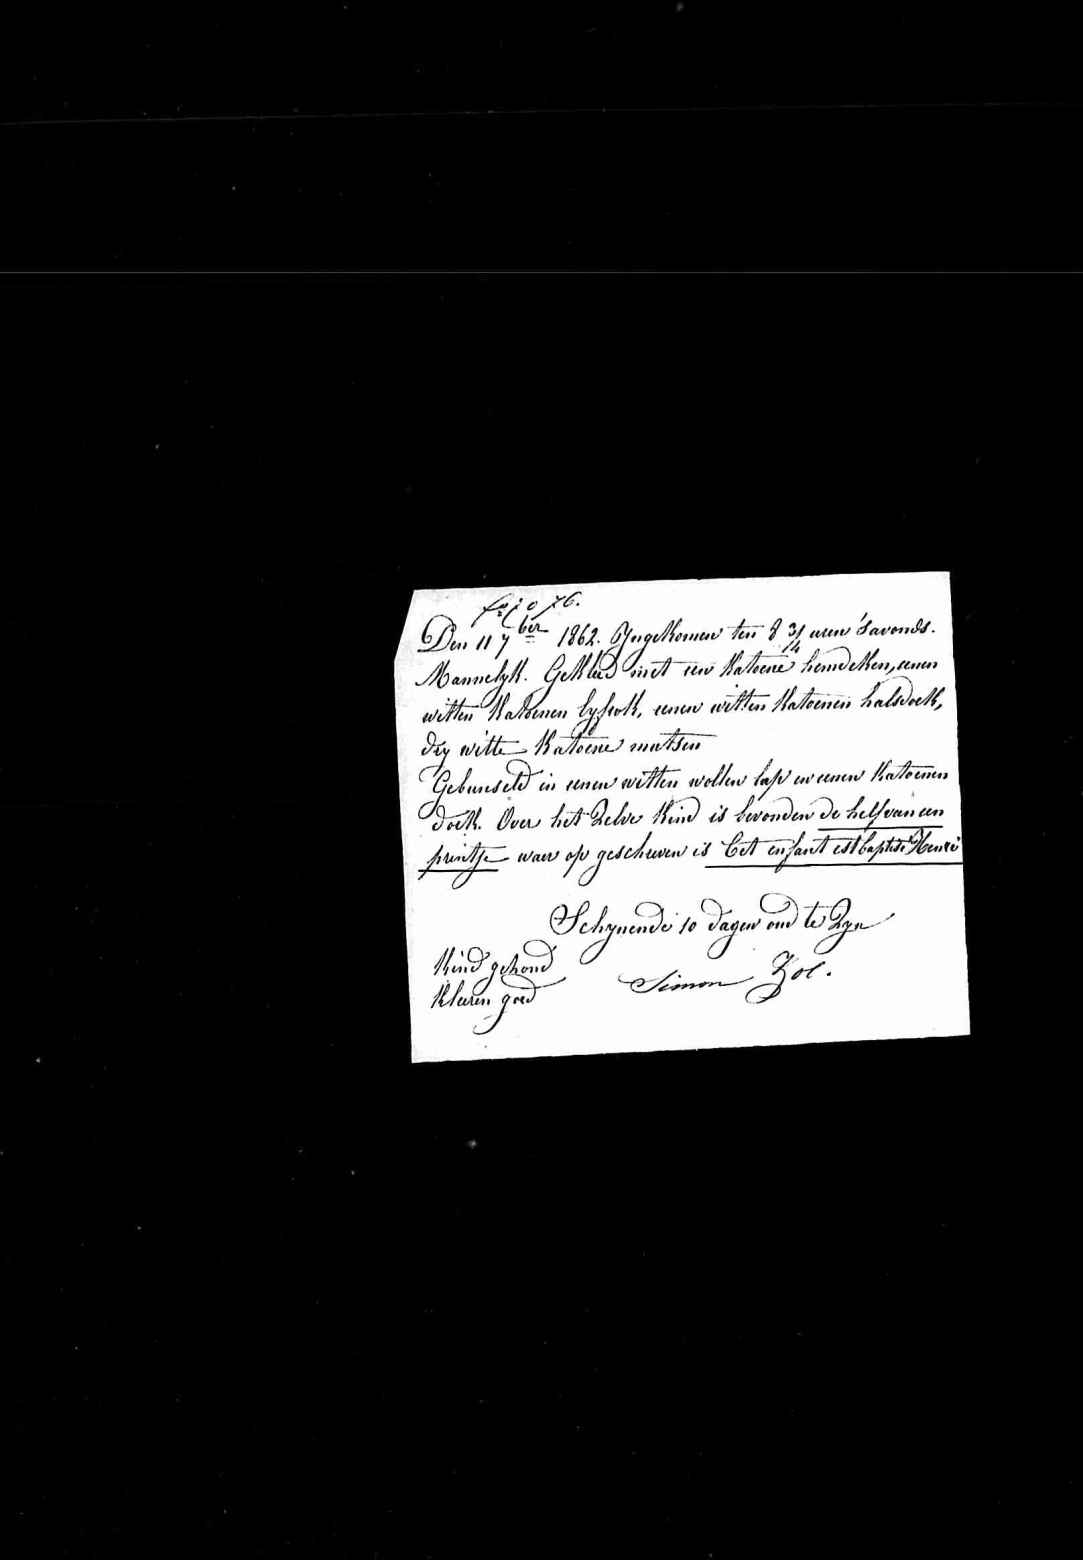 folio 76.
Den 11 7ber 1862. Yngekomen ten 8 3/4 uren 'savonds.
Mannelyk. Gekleed met een katoene hemdeken, eenen
witten katoenen lyfrok, eenen witten katoenen halsdoek,
dry witte katoene mutsen
Gebunseld in eenen witten wollen lap en eenen katoenen
doek. Over het zelve kind is bevonden de helf van een
printje waer op geschreven is Cet enfant est baptisé Henri
Schynende 10 dagen oud te zyn
Kind gezond
Simon
Kleeren goed